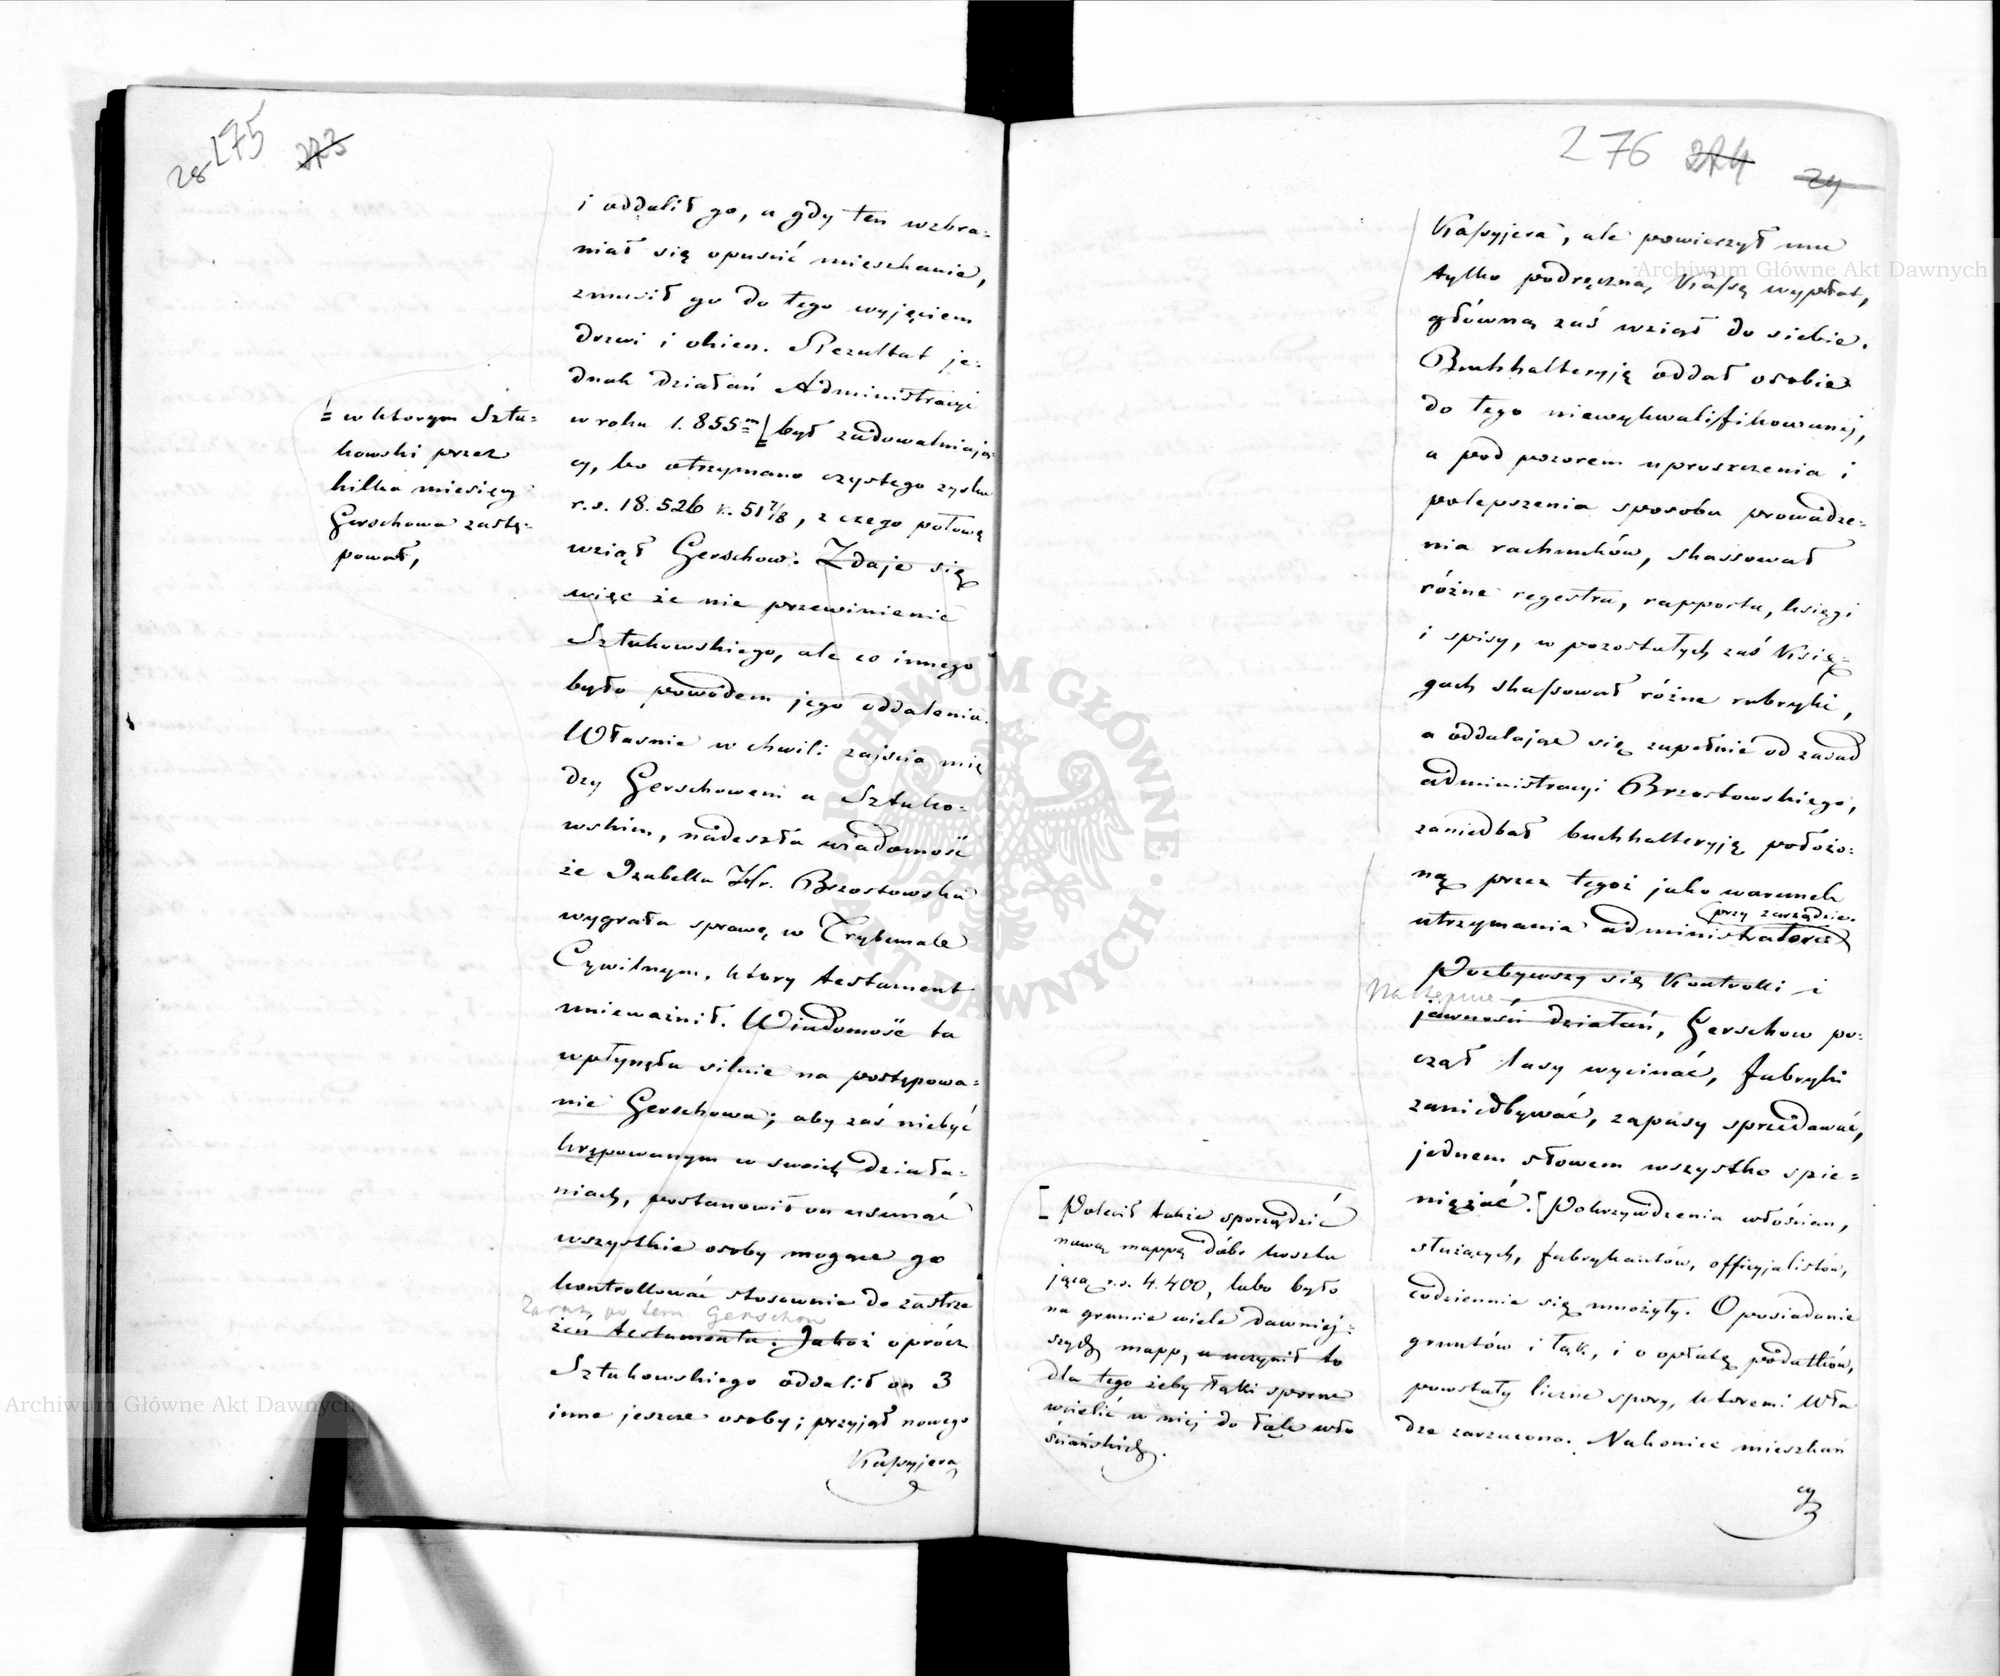 28 275 273
i oddalił go, a gdy ten wzbra=
niał się opuścić mieszkanie,
zmusił go do tego wyjęciem
drzwi i okien. Rezultat je=
dnak działań Administracyi
w roku 1.855m był zadowalniają=
cy, bo otrzymano czystego zysku
r.s. 18.526 k. 51 7/8, z czego połowę
wziął Gerschow. Zdaje się
więc że nie przewinienie
Sztukowskiego, ale co innego
było powodem jego oddalenia.
Własnie w chwili zajścia mię
dzy Gerschowem a Sztuko=
wskim, nadeszła wiadomość
że Izabella Hr. Brzostowska
wygrała sprawę w Trybunale
Cywilnym, który testament
unieważnił. Wiadomość ta
wpłynęła silnie na postępowa=
nie Gerschowa; aby zaś niebyć
krępowanym w swoich działa=
niach, postanowił on usunąć
wszystkie osoby mogące go
kontrollować stosownie do zastrze
Zaraz po tem Gerschow
żeń testamentu. Jakoż oprócz
Sztukowskiego oddalił on 3
inne jeszcze osoby; przyjął nowego
Kassyjera
= w ktorym Sztu=
kowski przez
kilka miesięcy
Gerschowa zastę=
pował,
276 274 24
Kassyjera, ale powierzył mu
tylko podręczną Kassę wypłat,
główną zaś wziął do siebie.
Buchhalteryję oddał osobie
do tego niewykwalifikowanej,
a pod pozorem uproszczenia i
polepszenia sposobu prowadze=
nia rachunków, skassował
różne regestra, rapporta, księgi
i spisy, w pozostałych zaś Księ=
gach skassował różne rubryki,
a oddalając się zupełnie od zasad
administracyi Brzostowskiego,
zaniedbał buchhalteryję położo=
ną przez tegoż jako warunek
przy zarządzie
utrzymania administratora
Pozbywszy się Kontrolli i
Następnie
jawności działań, Gerschow po=
czął lasy wycinać, fabryki
zaniedbywać, zapasy sprzedawać,
jednem słowem wszystko spie=
niężać. [Pokrzywdzenia włościan,
służących, fabrykantów, officyjalistów,
codziennie się mnożyły. O posiadanie
gruntów i łąk, i o opłatę podatków,
powstały liczne spory, ktoremi Wła
dze zarzucono. Nakoniec mieszkań
cy
[Polecił także sporządzić
nową mappę dóbr kosztu
jącą r.s. 4.400, lubo było
na gruncie wiele dawniej=
szych mapp, a uczynił to
dla tego żeby łąki sporne
wcielić w niej do łąk wło
ściańskich.
Archiwum Główne Akt Dawnych
Archiwum Główne Akt Dawnych
ARCHIWUM GŁÓWNE AKT DAWNYCH